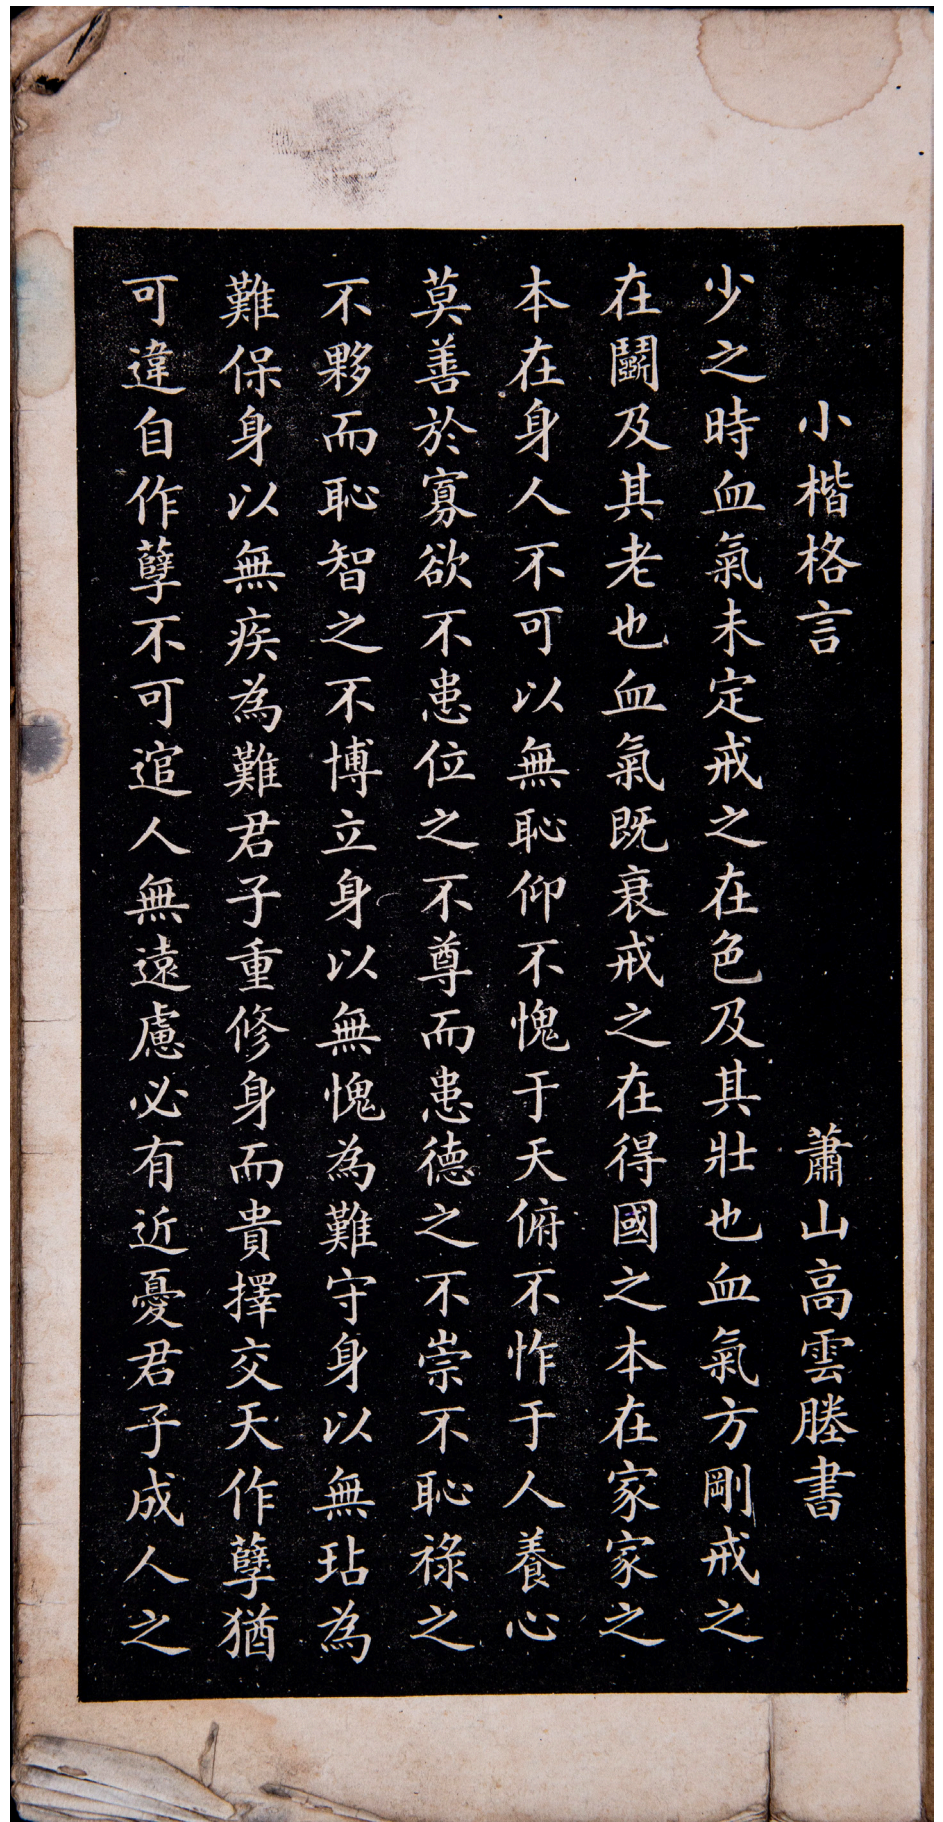 小楷格言 蕭山高雲塍書
少之時血氣未定戒之在色及其壯也血氣方剛戒之
在鬭及其老也血氣既衰戒之在得國之本在家家之
本在身人不可以無恥仰不愧于天俯不怍于人養心
莫善於寡欲不患位之不尊而患德之不崇不恥祿之
不夥而恥智之不博立身以無愧為難守身以無玷為
難保身以無疾為難君子重修身而貴擇交天作孽猶
可違自作孽不可逭人無遠慮必有近憂君子成人之